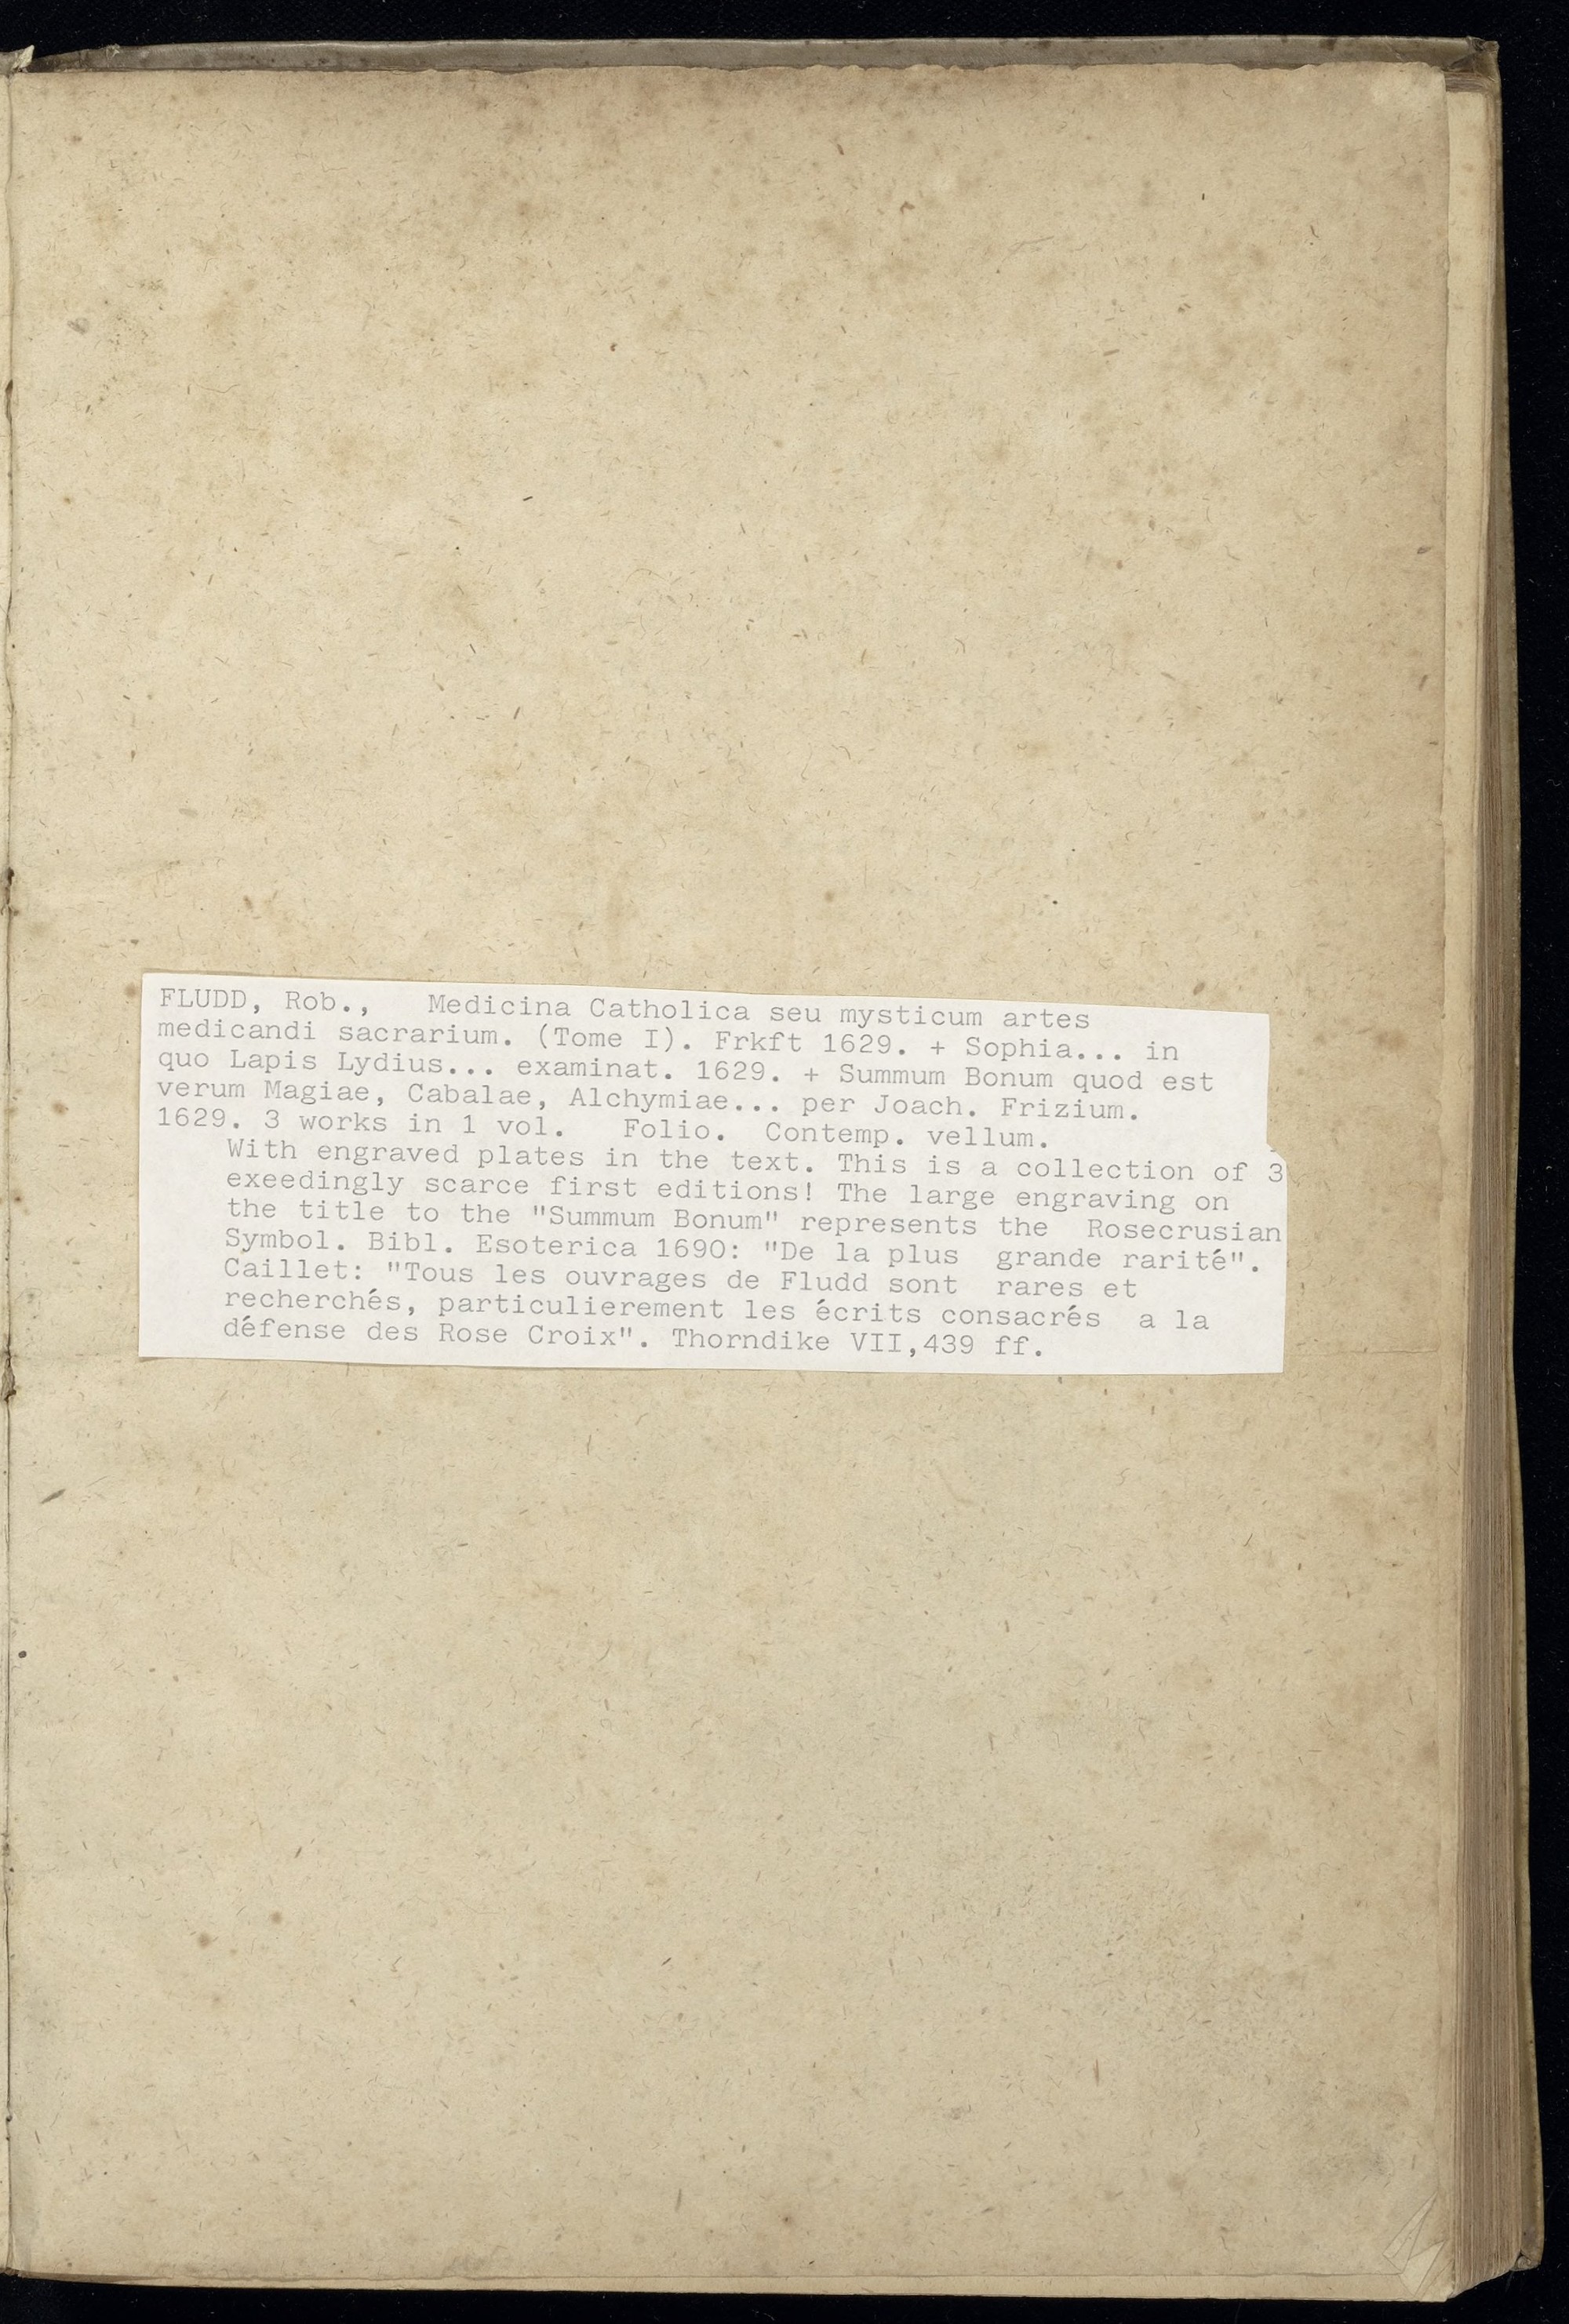 FLUDD, Rob.,   Medicina Catholica seu mysticum artes
medicandi sacrarium. (Tome I). Frkft 1629. + Sophia... in
quo Lapis Lydius... examinat. 1629. + Summum Bonum quod est
verum Magiae, Cabalae, Alchymiae... per Joach. Frizium.
1629. 3 works in 1 vol.   Folio.  Contemp. vellum.
With engraved plates in the text. This is a collection of 3
exeedingly scarce first editions! The large engraving on
the title to the "Summum Bonum" represents the  Rosecrusian
Symbol. Bibl. Esoterica 1690: "De la plus  grande rarité".
Caillet: "Tous les ouvrages de Fludd sont  rares et
recherchés, particulierement les écrits consacrés  a la
défense des Rose Croix". Thorndike VII,439 ff.